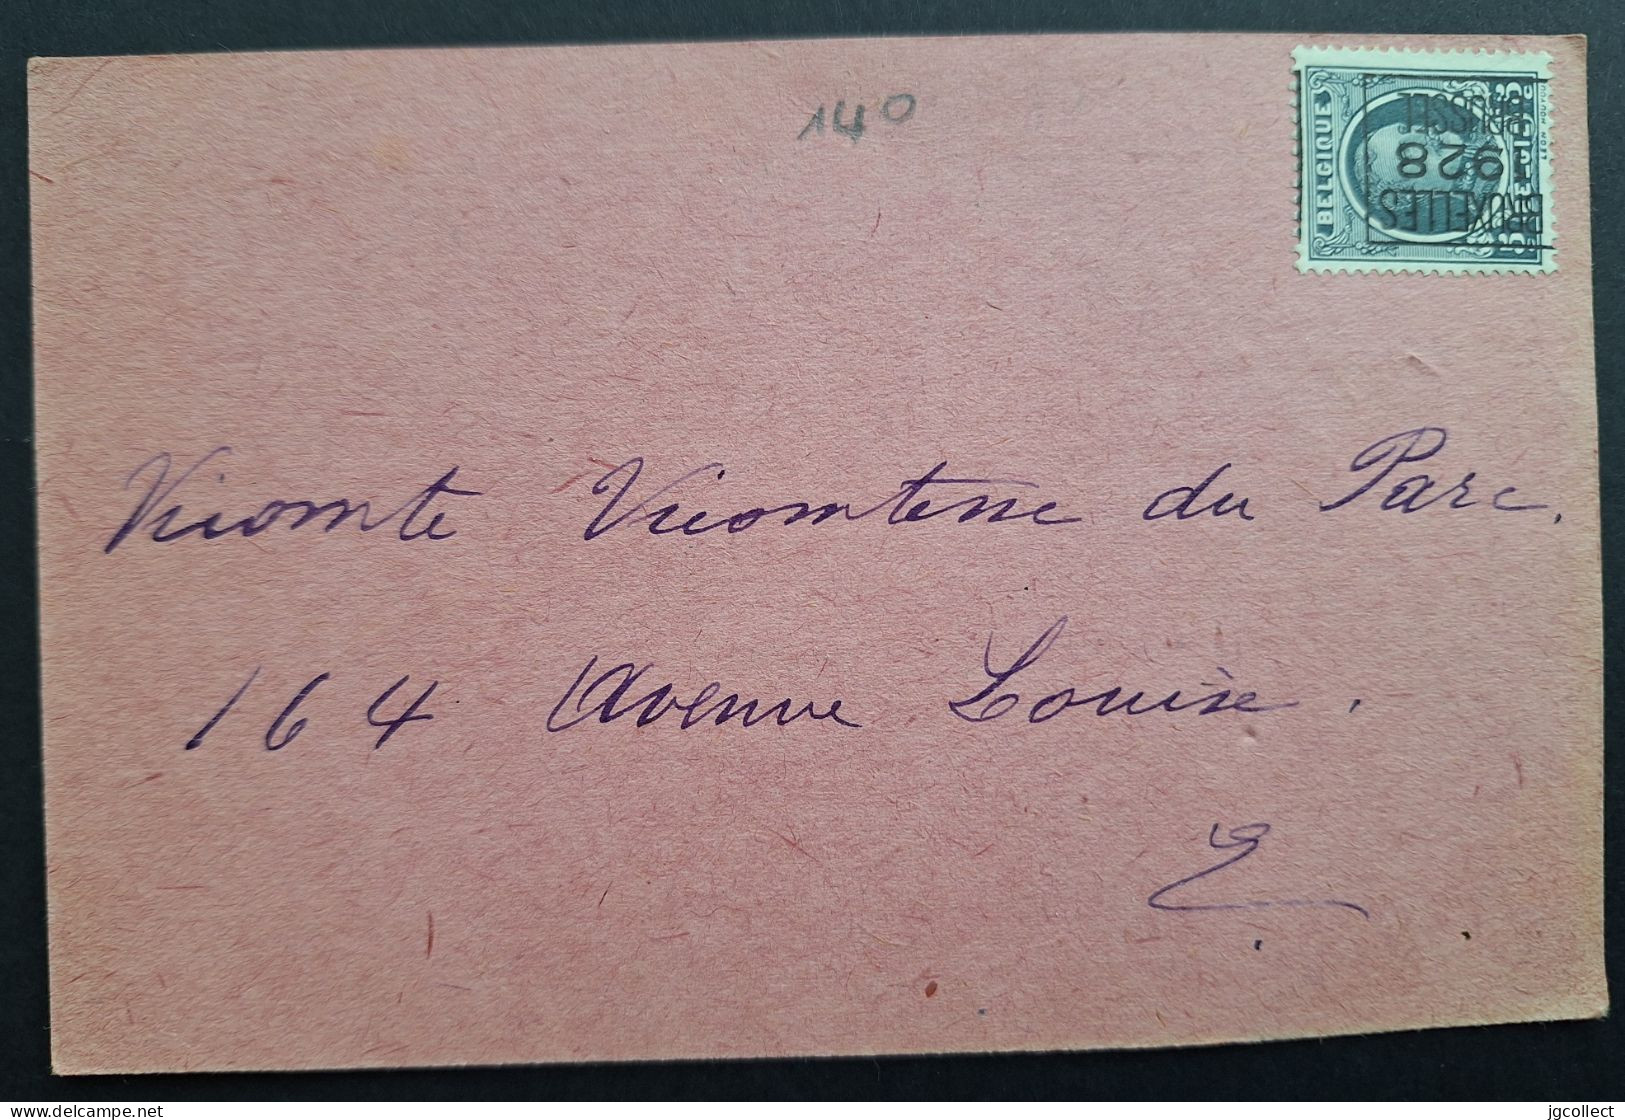 140
BELGIQUE
BRUXELLES
1928
BRUSSEL
Vicomte Vicomtesse du Parc.
164 Avenue Louise.
E
delcampe.net
jgcollect